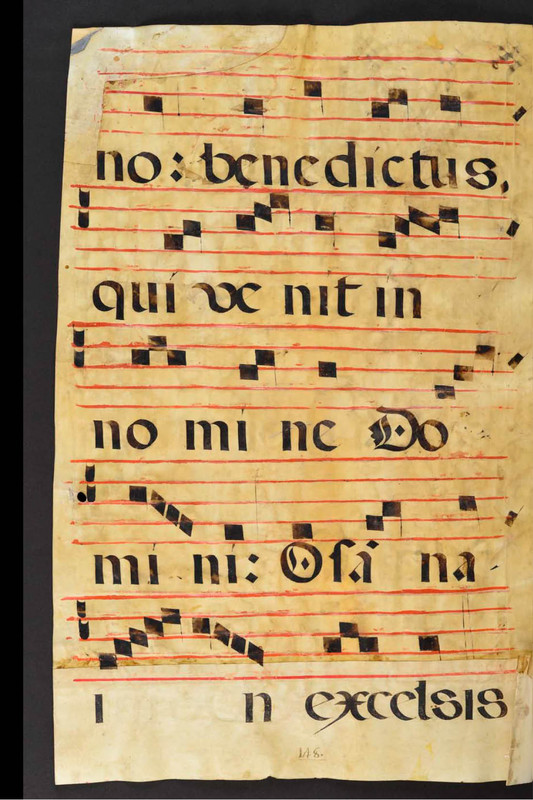 no: benedictus,
qui ve nit in
no mi ne Do
mi ni: Osã na
i n excelsis
148.